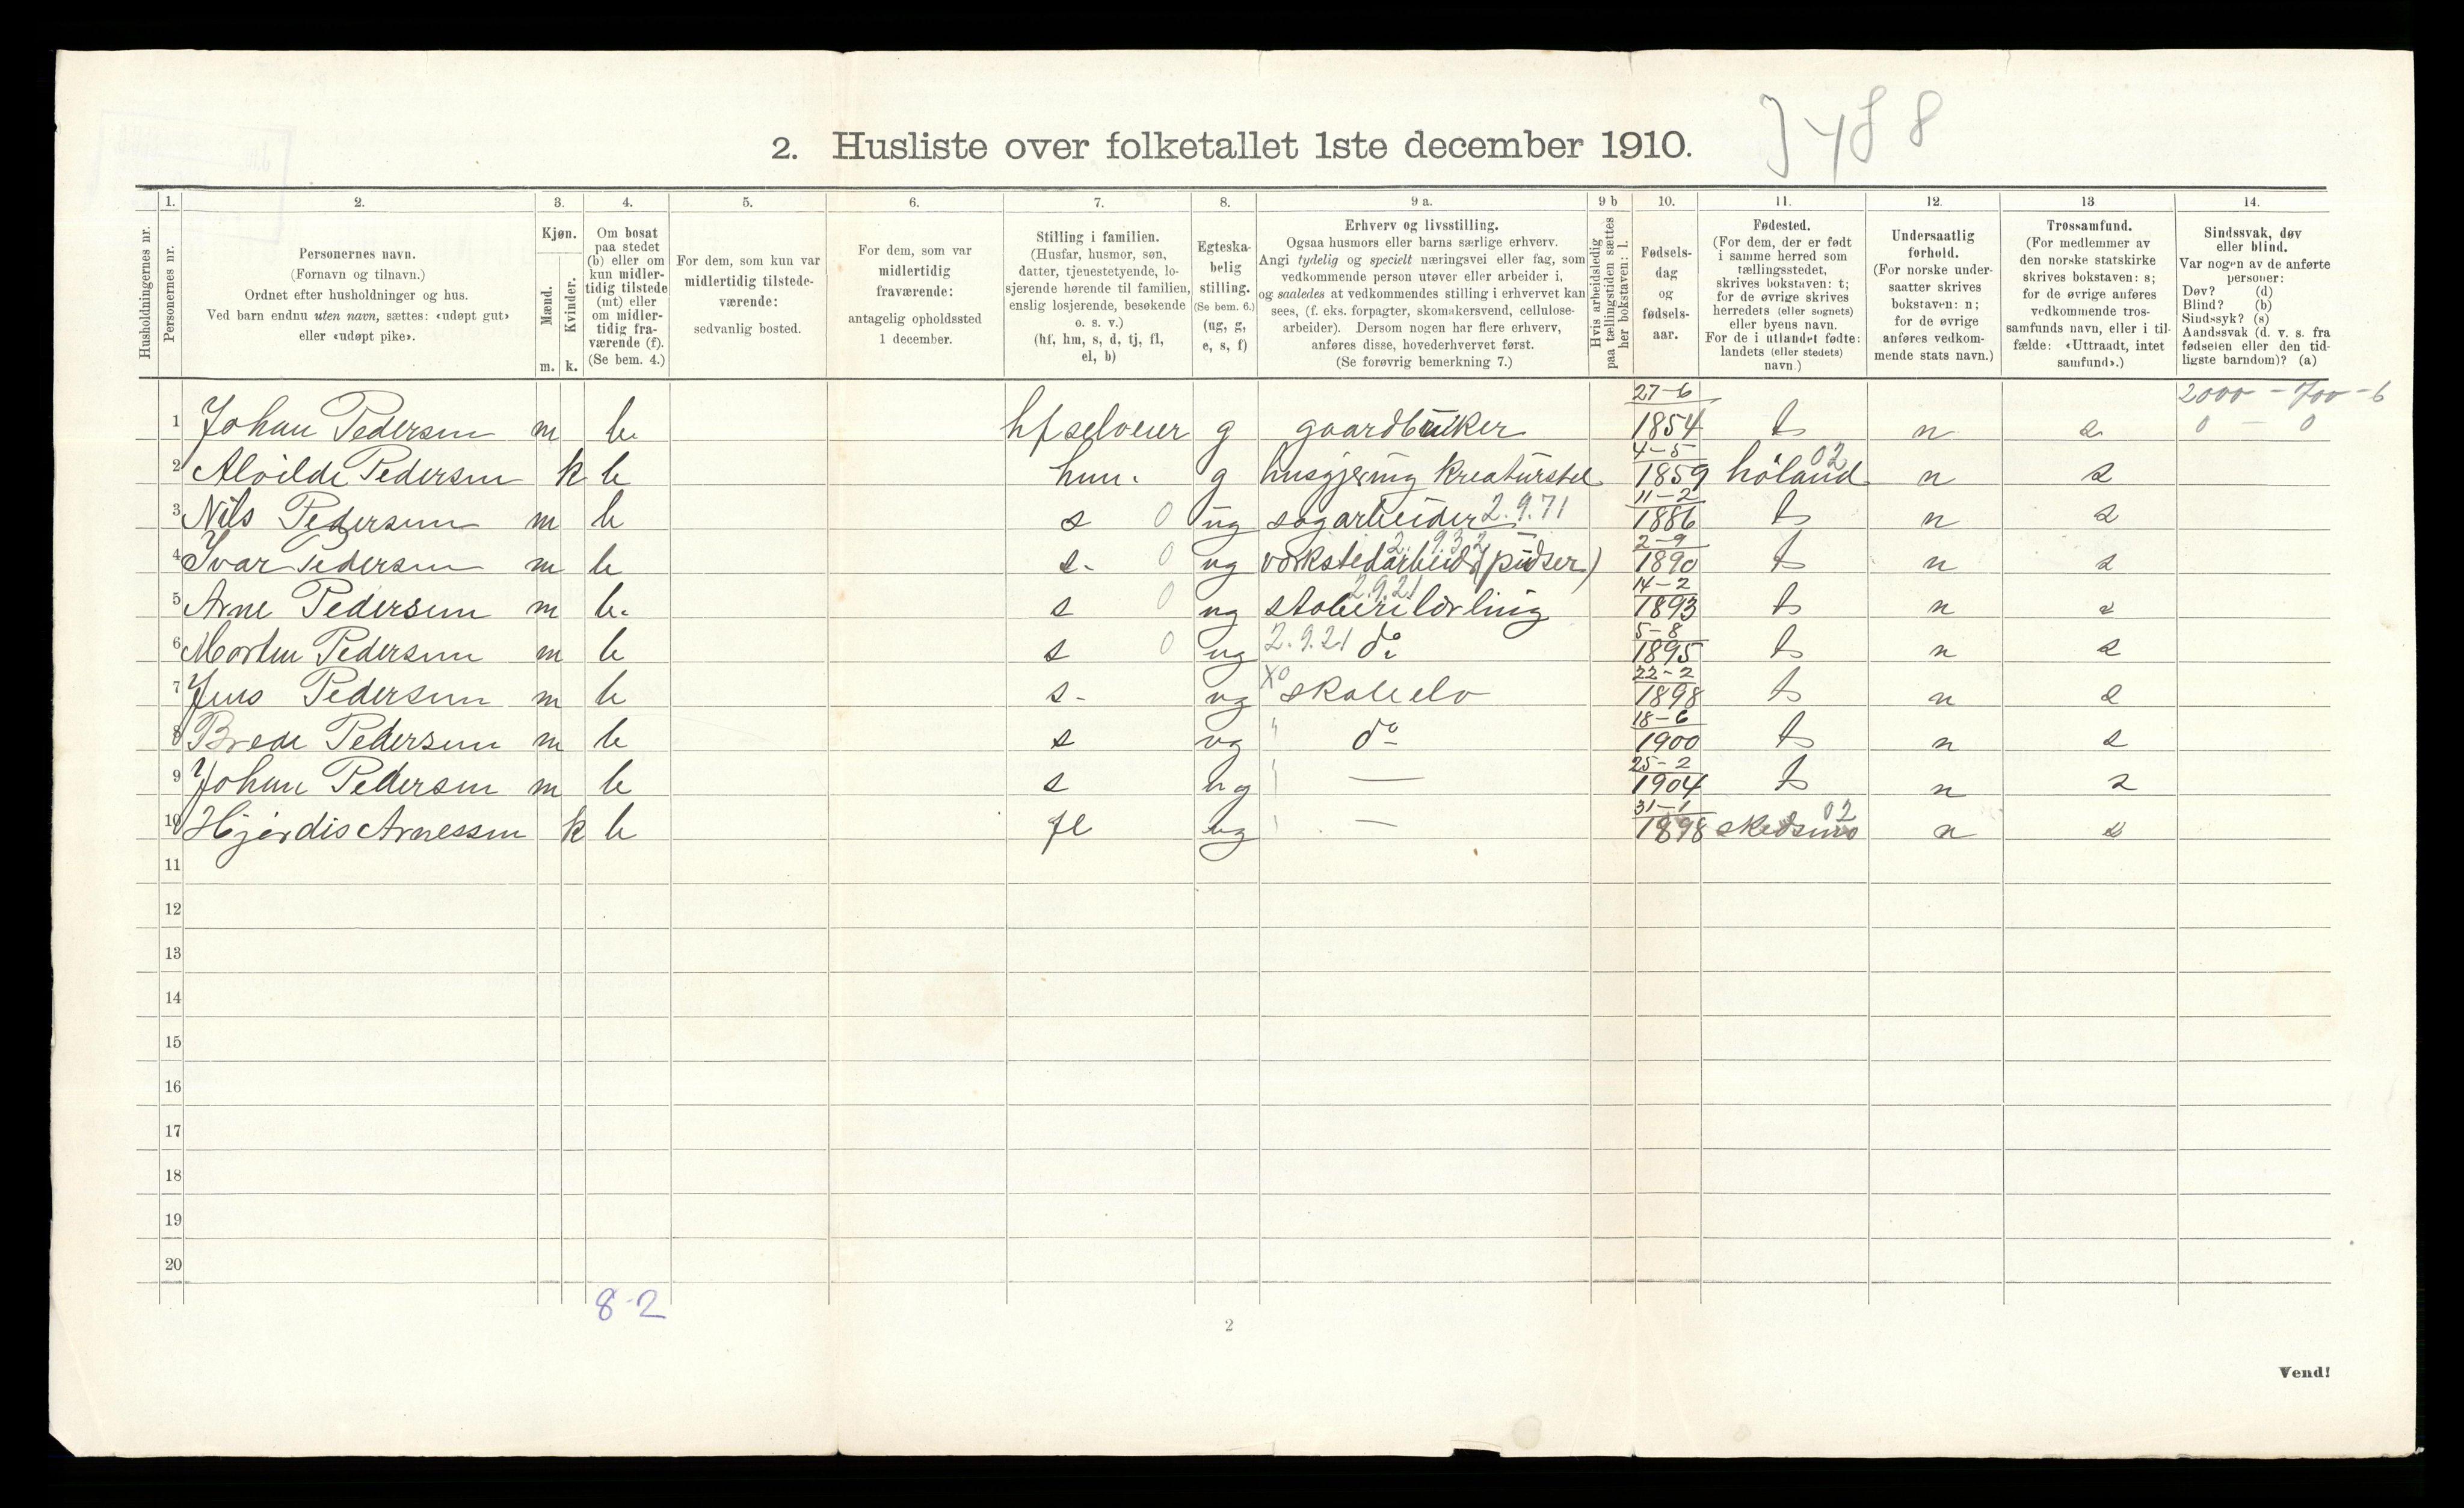 2. Husliste over folketallet 1ste december 1910.
1. 2. 3. 4. 5. 6. 7. 8. 9 a. 9 b 10. 11. 12. 13 14.
Husholdningernes nr.
Personernes nr.
Personernes navn.
(Fornavn og tilnavn.)
Ordnet efter husholdninger og hus.
Ved barn endnu uten navn, sættes: «udøpt gut»
eller «udøpt pike».
Kjøn.
Mænd.
Kvinder.
m. k.
Om bosat
paa stedet
(b) eller om
kun midler-
tidig tilstede
(mt) eller
om midler-
tidig fra-
værende (f).
(Se bem. 4.)
For dem, som kun var
midlertidig tilstede-
værende:
sedvanlig bosted.
For dem, som var
midlertidig
fraværende:
antagelig opholdssted
1 december.
Stilling i familien.
(Husfar, husmor, søn,
datter, tjenestetyende, lo-
sjerende hørende til familien,
enslig losjerende, besøkende
o. s. v.)
(hf, hm, s, d, tj, fl,
el, b)
Egteska-
belig
stilling.
(Se bem. 6.)
(ug, g,
e, s, f)
Erhverv og livsstilling.
Ogsaa husmors eller barns særlige erhverv.
Angi tydelig og specielt næringsvei eller fag, som
vedkommende person utøver eller arbeider i,
og saaledes at vedkommendes stilling i erhvervet kan
sees, (f. eks. forpagter, skomakersvend, cellulose-
arbeider). Dersom nogen har flere erhverv,
anføres disse, hovederhvervet først.
(Se forøvrig bemerkning 7.)
Hvis arbeidsledig
paa tællingstiden sættes
her bokstaven: l.
Fødsels-
dag
og
fødsels-
aar.
Fødested.
(For dem, der er født
i samme herred som
tællingsstedet,
skrives bokstaven: t;
for de øvrige skrives
herredets (eller sognets)
eller byens navn.
For de i utlandet fødte:
landets (eller stedets)
navn.)
Undersaatlig
forhold.
(For norske under-
saatter skrives
bokstaven: n;
for de øvrige
anføres vedkom-
mende stats navn.)
Trossamfund.
(For medlemmer av
den norske statskirke
skrives bokstaven: s;
for de øvrige anføres
vedkommende tros-
samfunds navn, eller i til-
fælde: «Uttraadt, intet
samfund».)
Sindssvak, døv
eller blind.
Var nogen av de anførte
personer:
Døv? (d)
Blind? (b)
Sindssyk? (s)
Aandssvak (d. v. s. fra
fødselen eller den tid-
ligste barndom)? (a)
27-6 2000 - 700 - 6
1 Johan Pedersen m b. hf selveier g gaardbruker 1854 t n s 0 - 0
4-5 02
2 Alvilde Pedersen k b hm. g husgjerning kreaturstel 1859 høland n s
11-2
3 Nils Pedersen m b s 0 ug sagarbeider 2.9.71 1886 t n s
2.9.32 2-9
4 Ivar Pedersen m b s- 0 ug verkstedarbeid (pudser) 1890 t n s
2.9.21 14-2
5 Arne Pedersen m b. s 0 ug støberilærling 1893 t n s
5-8
6 Morten Pedersen m b s 0 ug 2.9.21 do 1895 t n s
22-2
7 Jens Pedersen m b s- ug X0 skoleelv 1898 t n s
18-6
8 Brede Pedersen m b s ug " do 1900 t n s
25-2
9 Johan Pedersen m b s ug " — 1904 t n s
31-1 02
10 Hjørdis Arnessen k b fl ug " — 1898 skedsmo n s
11
12
13
14
15
16
17
18
19
20
8-2
2
Vend!